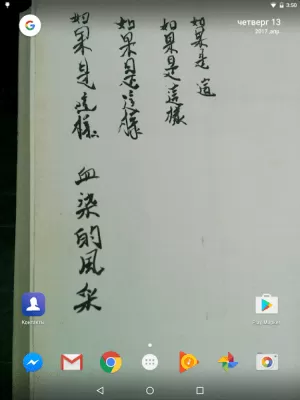 3:50
четверг 13
2017 апр.
如果是這
如果是這樣
如果是這樣
如果是這樣 血染的風采
Контакты